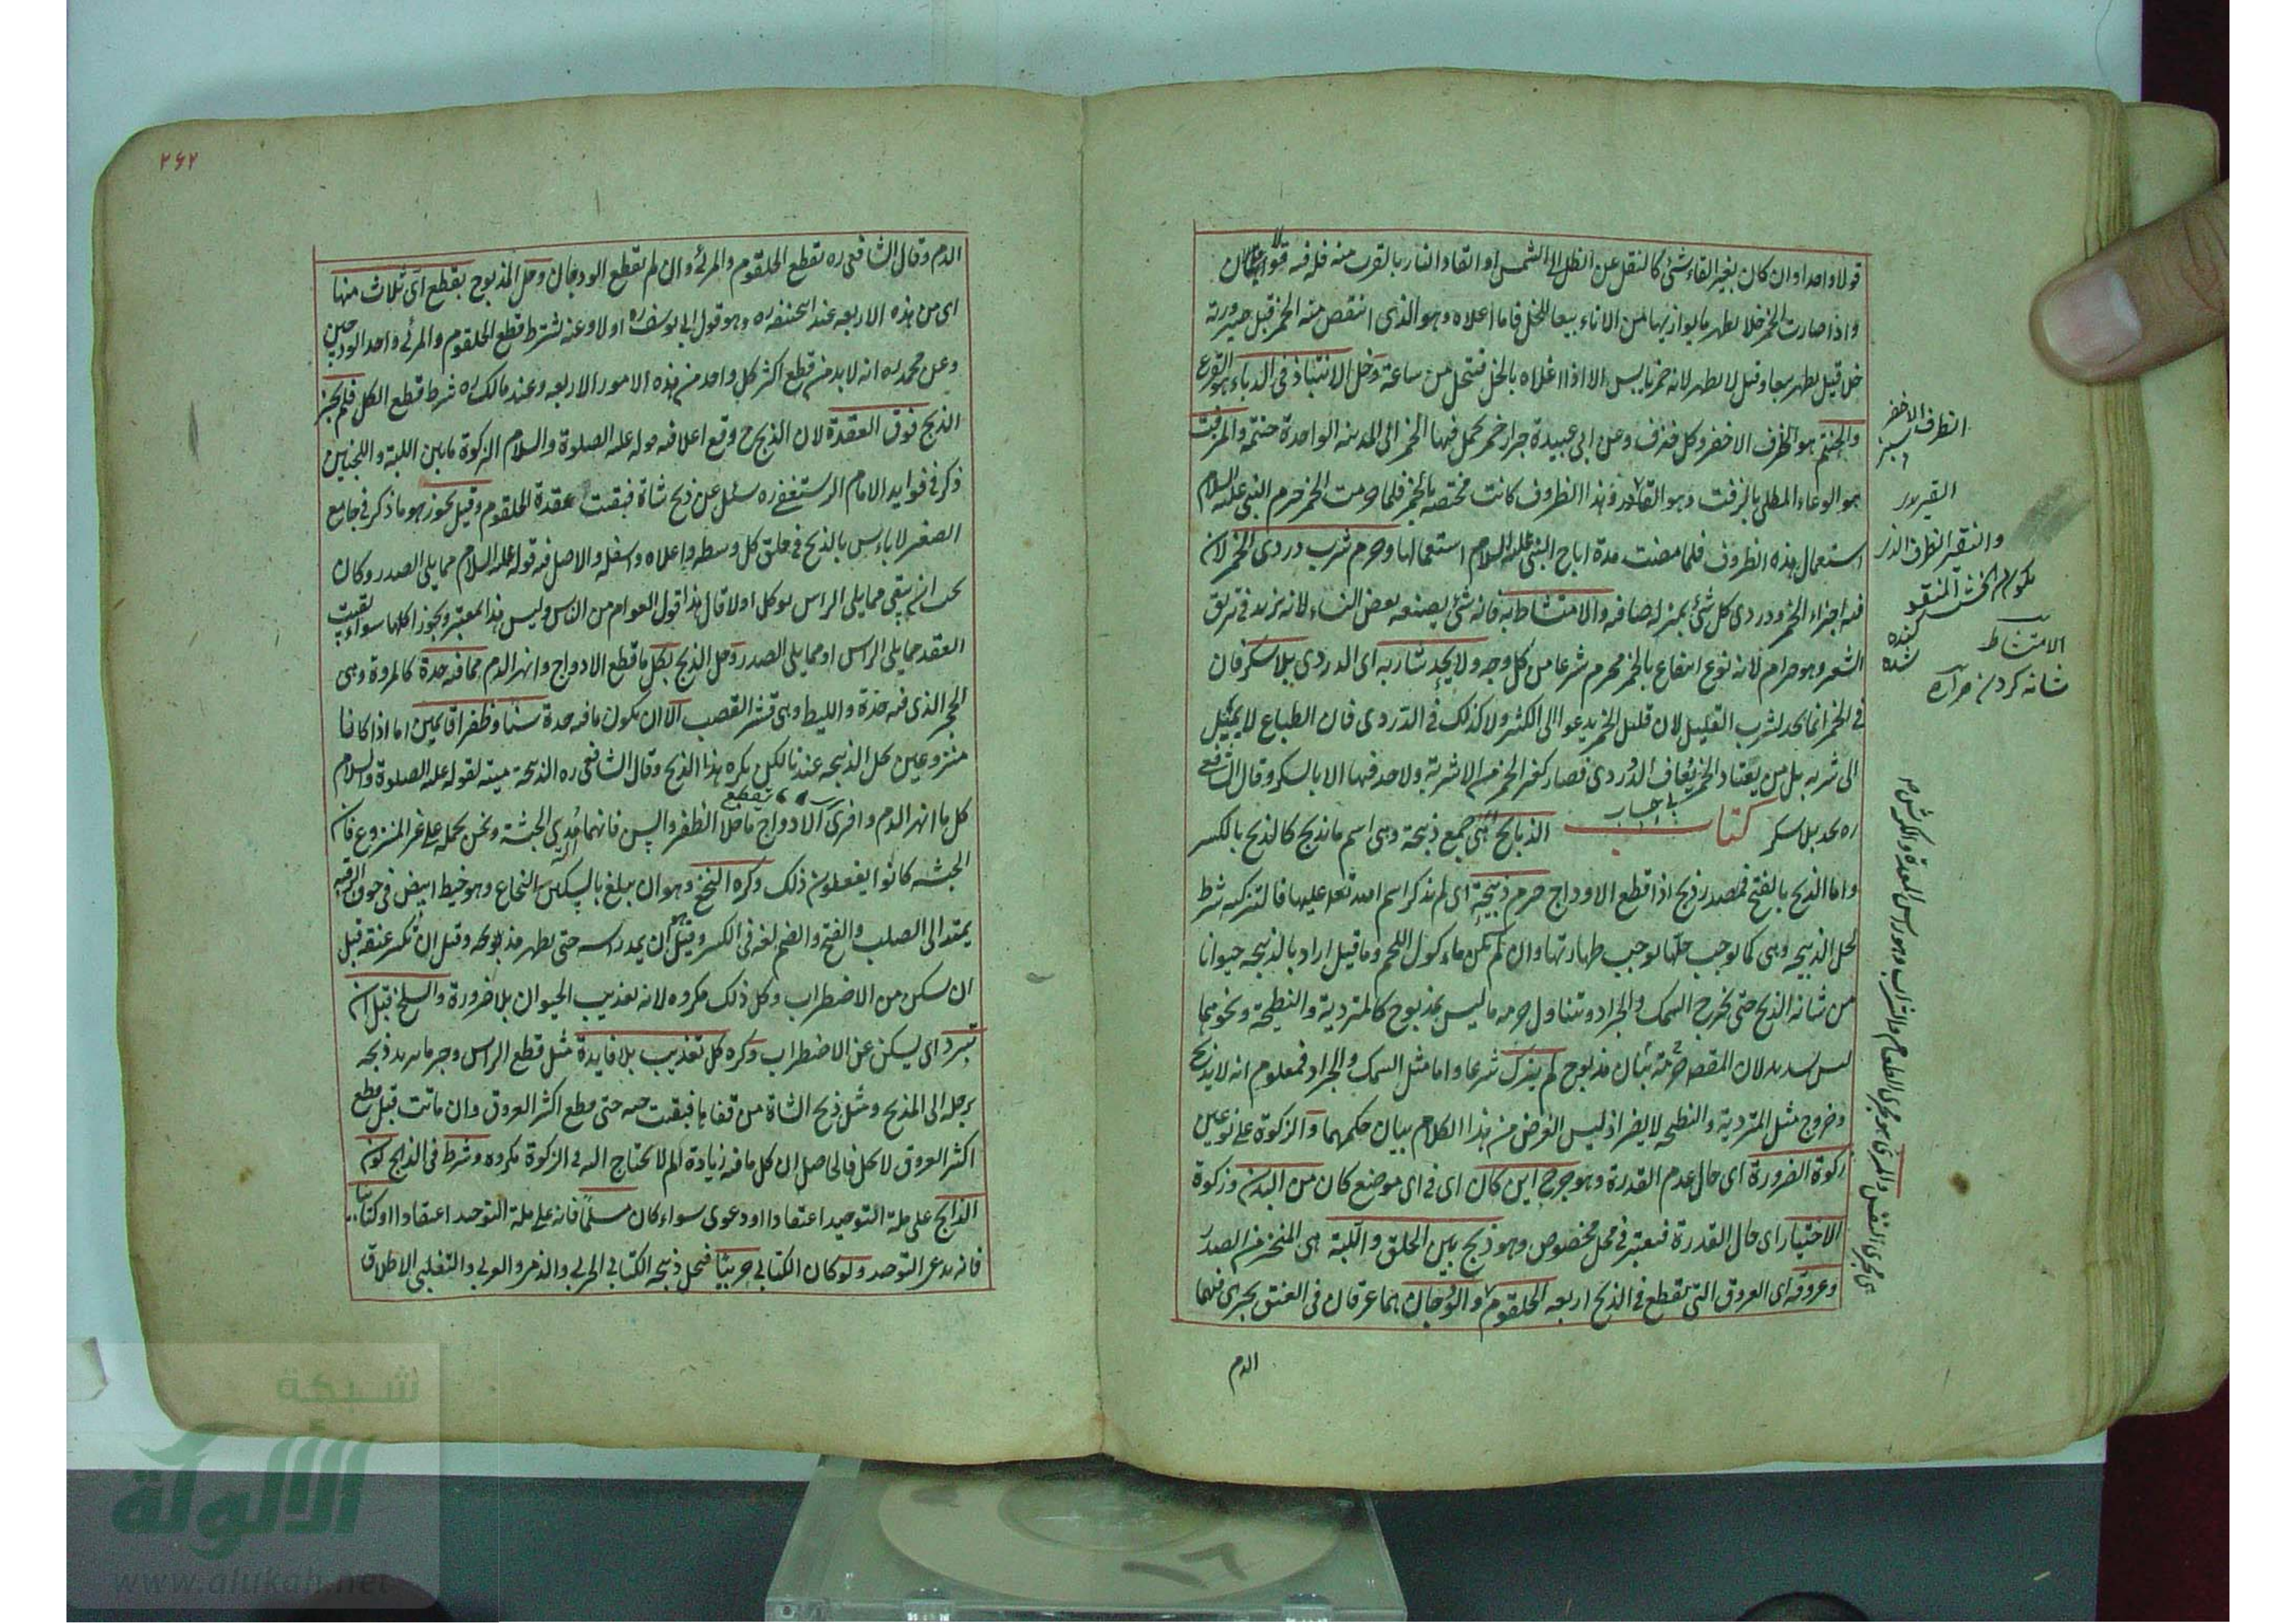 قولا واحدا وان كان بغير القاء شئ كالنقل عن الظل الى الشمس او ايقاد النار بالقرب منه فله فيه قولان
واذا صارت الخمر خلا يطهر ما يوازيها من الاناء تبعا للخل فاما اعلاه وهو الذى انتقص منه الخمر قبل صيرورته
خل قيل يطهر تبعا وقيل لا يطهر لانه خمر يابس الا اذا اغلاه بالخل فتخلل من ساعة وحل الانتباذ فى الدباء هو القرع
والحنتم هو الظرف الاخضر وكل خزف وعن ابى عبيدة جرار خمر يحمل فيها الخمر الى المدينه الواحدة حنتمة والمزفت
هو الوعاء المطلى بالزفت وهو القار وهذا الظروف كانت مختصة بالخمر فلما حرمت الخمر حرم النبى عليه السلام
استعمال هذه الظروف فلما مضت مدة اباح النبى عليه السلام استعمالها وحرم شرب دردى الخمر لان
فيه اجزاء الخمر ودردى كل شئ بمنزلة صافيه والامتشاط به فانه شئ يصنعه بعض النساء لانه يزيد فى تبريق
الشعر وهو حرام لانه نوع انتفاع بالخمر محرم شرعا من كل وجه ولا يحد شاربه اى الدردى بلا سكر فان
فى الخمر انما يحد لشرب القليل لان قليل الخمر يدعو الى الكثير ولا كذلك فى الدردى فان الطباع لا يميل
الى شربه بل من يعتاد الخمر يعاف الدردى فصار كغير الخمر من الاشربة ولا حد فيها الا بالسكر وقال الشافعى
ره يحد بلا سكر كتاب الذبايح هى جمع ذبيحة وهى اسم ما يذبح كالذبح بالكسر
واما الذبح بالفتح فمصدر ذبح اذا قطع الاوداج حرم ذبيحة اى لم يذكر اسم الله تعالى عليها فالتزكيه شرط
لحل الذبيحه وهى كما يوجب حلها يوجب طهارتها وان لم يكن ماءكول اللحم وما قيل اراد بالذبيحه حيوانا
من شانه الذبح حتى يخرج السمك والجراد ويتناول حرمة ما ليس بمذبوح كالمتردية والنطيحة ونحوهما
ليس بسديد لان المقصد حرمة شان مذبوح لم يذك شرعا واما مثل السمك والجراد فمعلوم انه لا يذبح
وخروج مثل المتردية والنطيحه لا يضر اذ ليس الغرض من هذا الكلام بيان حكمهما والزكوة على نوعين
زكوة الضرورة اى حال عدم القدرة وهو جرح اين كان اى فى اى موضع كان من البدن وزكوة
الاختيار اى حال القدرة فيعتبر فى محل مخصوص وهو ذبح بين الحلق واللبة هى المنحر من الصدر
وعروقه اى العروق التى يقطع فى الذبح اربعه الحلقوم والودجان هما عرقان فى العنق يجرى فيهما
الدم
الظرف الاخضر
سبز
والنقير الظرف الذى
يكون من الخشب المنقور
كنده شده
الامتشاط
شانه كردن
هى مجرى النفس والمرى هو مجرى الطعام والشراب وهو راس المعدة والكرش
۲۶۲
الدم وقال الشافعى ره يقطع الحلقوم والمرئ وان لم يقطع الودجان وحل المذبوح بقطع اى ثلاث منها
اى من هذه الاربعه عند ابى حنيفه ره وهو قول ابى يوسف ره اولا وعنه يشترط قطع الحلقوم والمرئ واحد الودجين
وعن محمد ره انه لا بد من قطع اكثر كل واحد من هذه الامور الاربعه وعند مالك ره شرط قطع الكل فلم يجز
الذبح فوق العقدة لان الذبح ح وقع اعلا فيه قوله عليه الصلوة والسلام الزكوة ما بين اللبة واللحيين
ذكر فى فوايد الامام الرستغفنى ره سئل عن ذبح شاة فبقيت عقدة الحلقوم وقيل يجوز هو ما ذكر فى جامع
الصغير لا باءس بالذبح فى حلق كل وسطه واعلاه واسفله والاصل فيه قوله عليه السلام مما يلى الصدر وكان
يجب ان يبقى مما يلى الراس يوكل او لا قال هذا قول العوام من الناس وليس هذا المعتبر ويجوز اكلها سواء بقيت
العقد مما يلى الراس او مما يلى الصدر وحل الذبح بكل ما قطع الاوداج وانهر الدم مما فيه حدة كالمروة وهى
الحجر الذى فيه حدة والليط وهى قشر القصب الا ان يكون ما فيه حدة سنا وظفرا قايمين اما اذا كانا
منزوعين يحل الذبيحه عندنا لكن يكره هذا الذبح وقال الشافعى ره الذبيحة ميتة لقوله عليه الصلوة والسلام
كل ما انهر الدم وافرى الاوداج ما خلا الظفر والسن فانهما مدى الحبشة ونحن نحمله على غير المنزوع فان
الحبشه كانوا يفعلون ذلك وكره النخع وهو ان يبلغ بالسكين النخاع وهو خيط ابيض فى جوف الرقبه
يمتد الى الصلب والفتح والضم لغه فى الكسر وقيل هو ان يمد راسه حتى يظهر مذبحه وقيل ان يكسر عنقه قبل
ان يسكن من الاضطراب وكل ذلك مكروه لانه تعذيب الحيوان بلا ضرورة والسلخ قبل ان
تبرد اى يسكن عن الاضطراب وكره كل تعذيب بلا فايدة مثل قطع الراس وجر ما يريد ذبحه
برجله الى المذبح ومثل ذبح الشاة من قفاها فبقيت حيه حتى قطع اكثر العروق وان ماتت قبل قطع
اكثر العروق لا يحل فالحاصل ان كل ما فيه زيادة الم لا يحتاج اليه فى الزكوة مكروه وشرط فى الذبح كون
الذابح على ملة التوحيد اعتقادا او دعوى سواء كان مسلما فانه على ملة التوحيد اعتقادا او كتابيا
فانه يدعى التوحيد ولو كان الكتابى حربيا فيحل ذبيحه الكتابى الحربى والذمى والعربى والتغلبى لاطلاق
شبكة
الألوكة
www.alukah.net